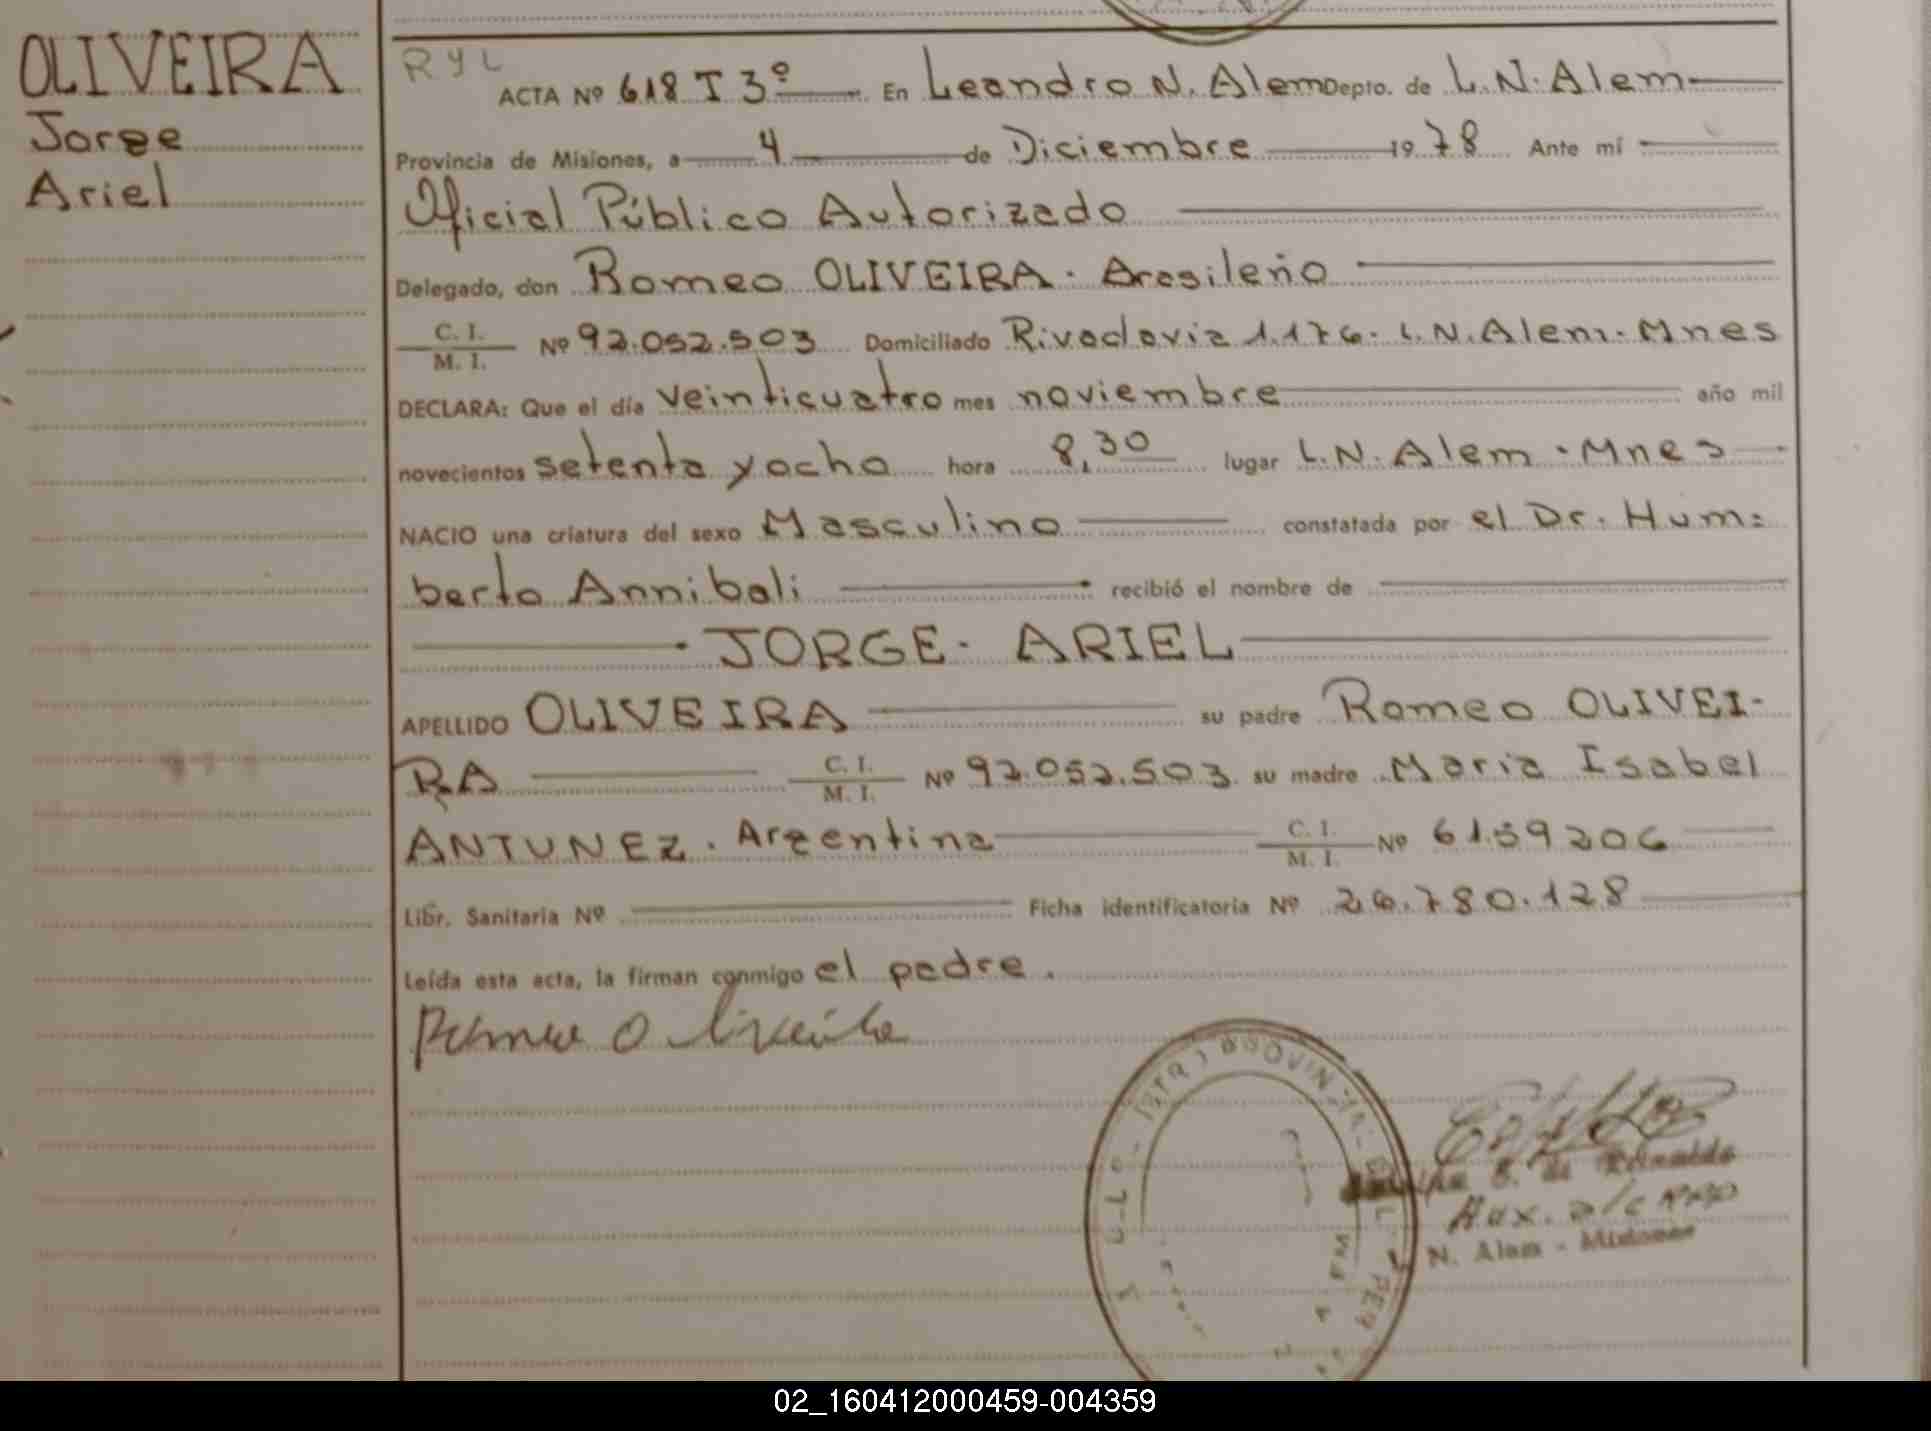 OLIVEIRA
Jorge
Ariel
RYL
ACTA Nº 618 T 3º En Leandro N. Alem Depto. de L.N. Alem
Provincia de Misiones, a 4 de Diciembre 1978 Ante mí
Oficial Público Autorizado
Delegado, don Romeo OLIVEIRA. Brasileño
C. I. M. I. Nº 92.052.503 Domiciliado Rivadavia 1.176. L.N. Alem. Mnes
DECLARA: Que el día veinticuatro mes noviembre año mil
novecientos setenta y ocho hora 8,30 lugar L.N. Alem. Mnes
NACIO una criatura del sexo Masculino constatada por el Dr. Hum=
berto Annibali recibió el nombre de
JORGE - ARIEL
APELLIDO OLIVEIRA su padre Romeo OLIVEI-
RA C. I. M. I. Nº 92.052.503 su madre Maria Isabel
ANTUNEZ. Argentina C. I. M. I. Nº 6159206
Libr. Sanitaria Nº Ficha identificatoria Nº 26.780.128
Leída esta acta, la firman conmigo el padre.
Romeo Oliveira
Aux. a/c
N. Alem - Misiones
02_160412000459-004359